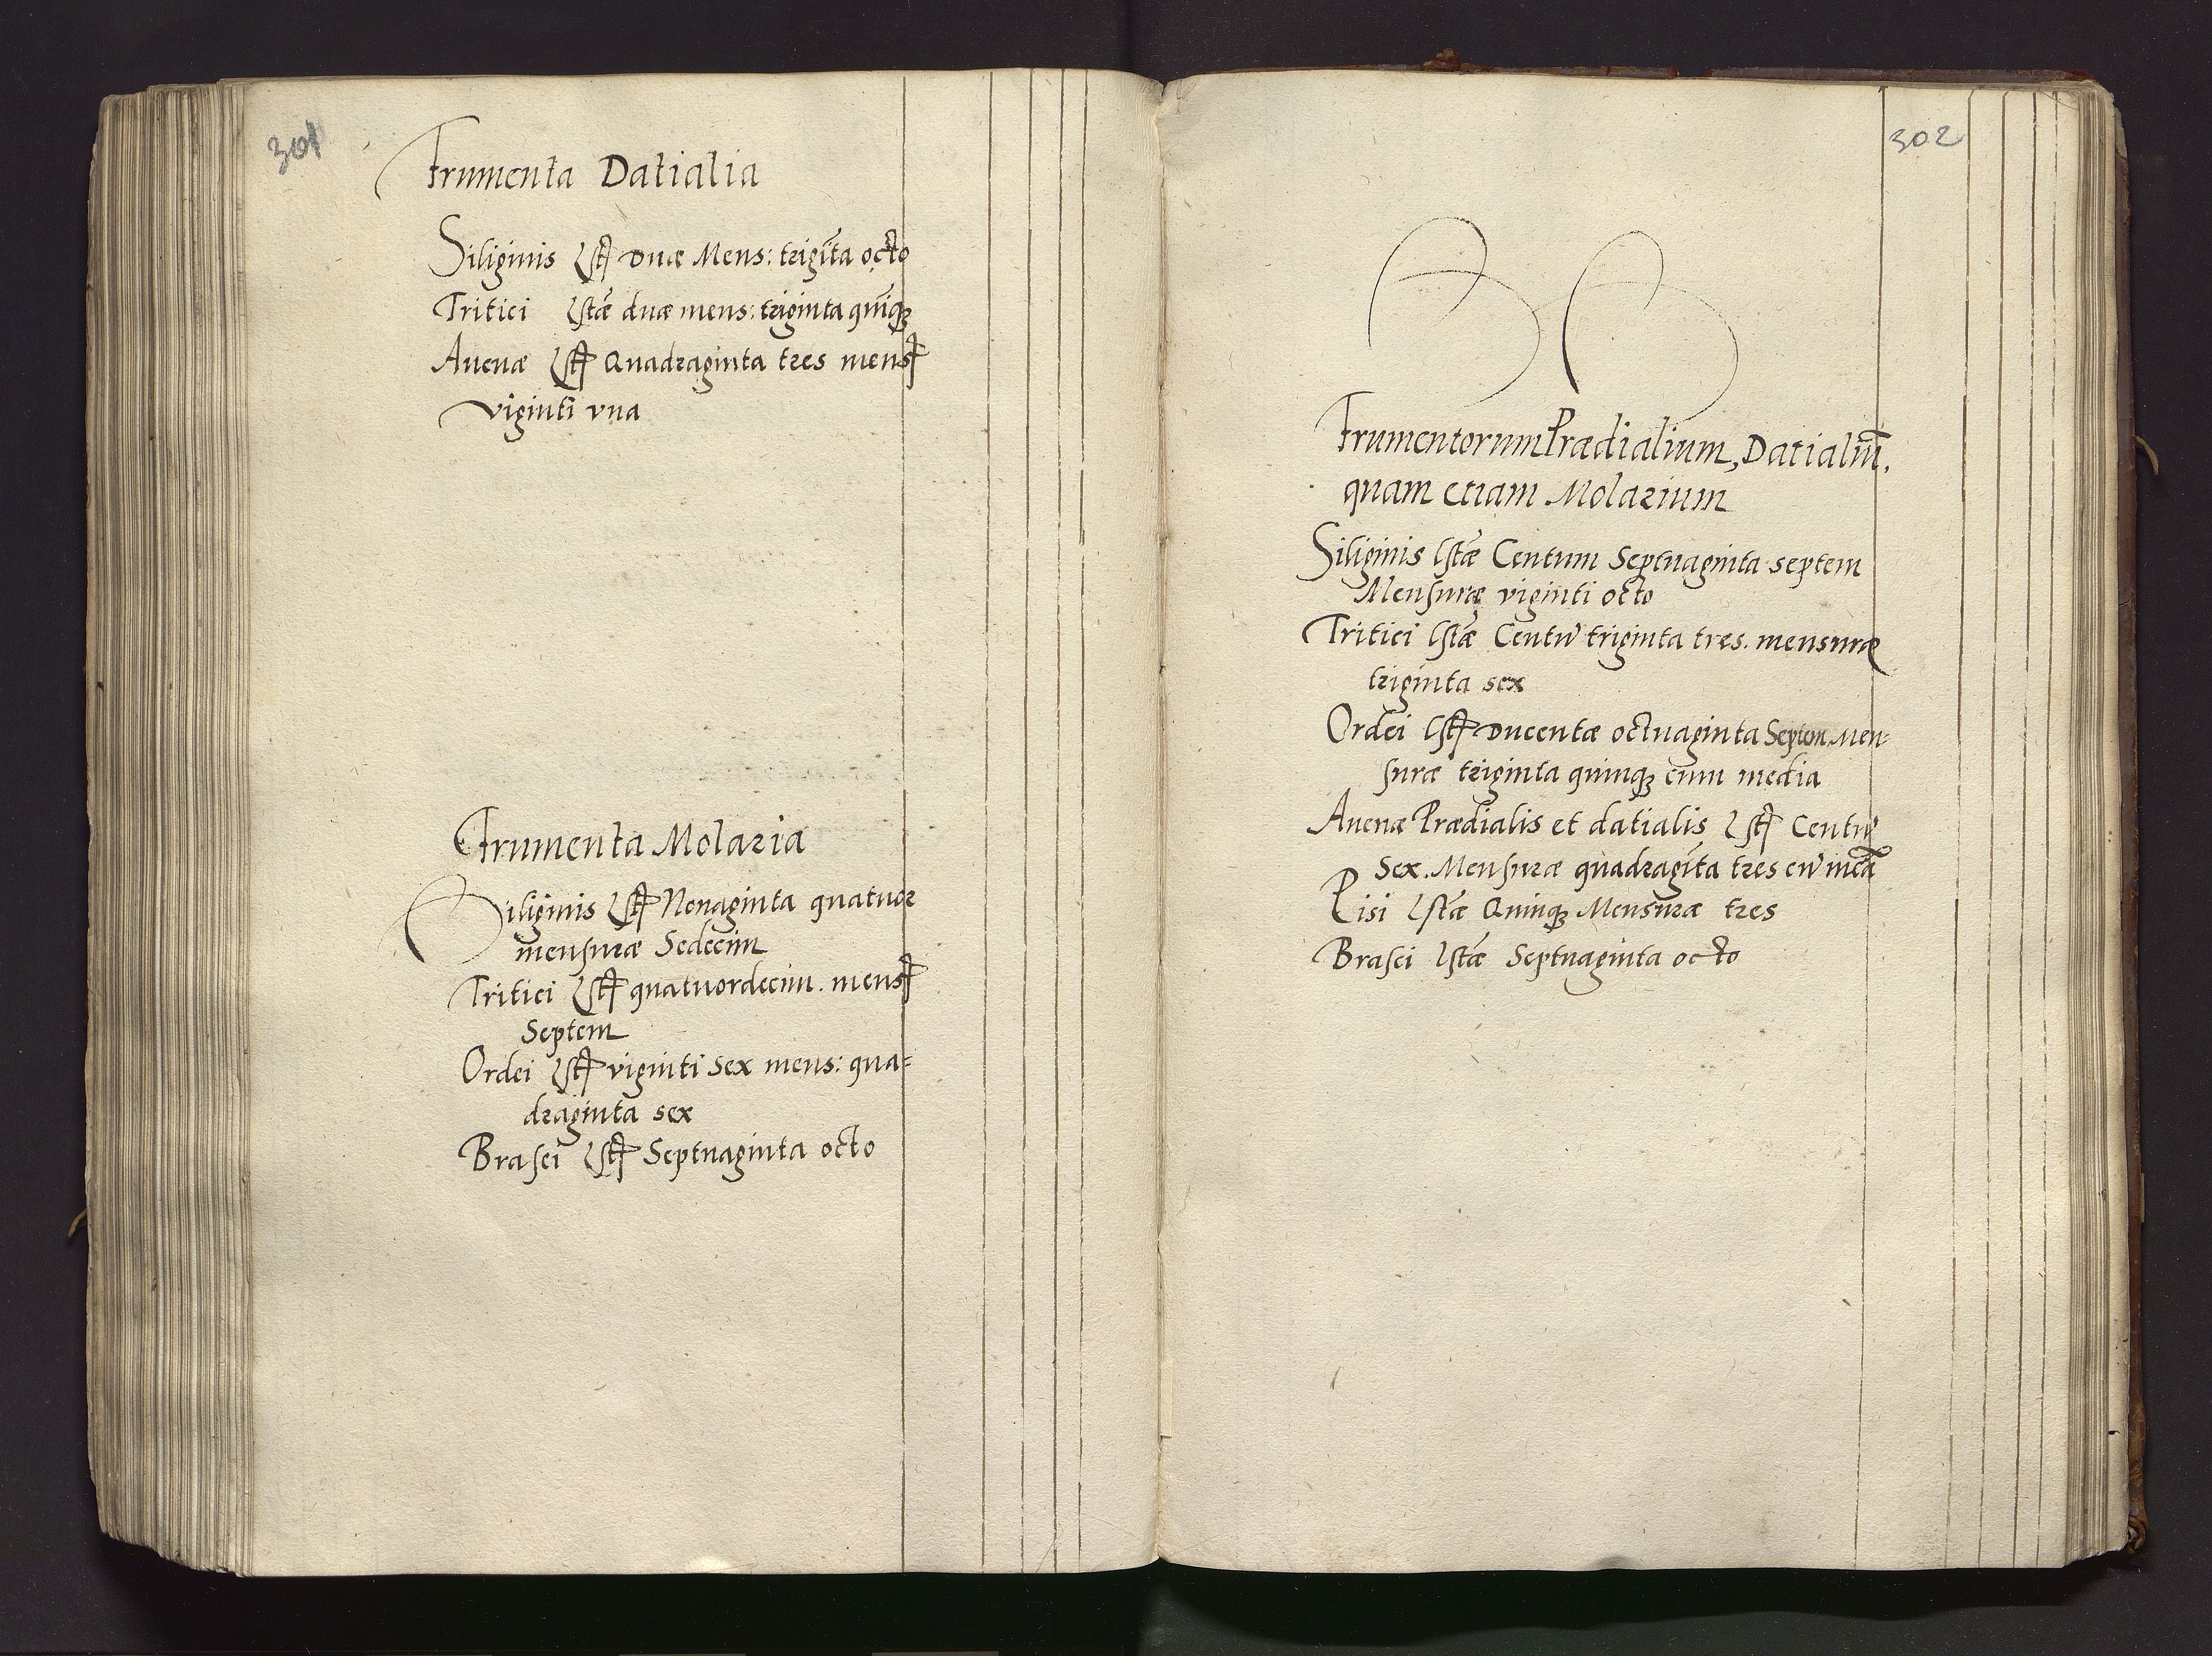 301
Frumenta Datialia
Siliginis lſt duæ Mens: trigīta octo
Tritici lſtæ duæ mens: triginta quīqꝫ
Auenæ lſt Quadraginta tres mens
viginti vna
Frumenta Molaria
Siliginis lſt Nonaginta quatuor
menſuræ Sedecim
Tritici lſt quatuordecim. mens
Septem
Ordei lſt viginti Sex mens: qua=
draginta sex
Braſei lſt Septuaginta octo
302
Frumentorum Prædialium, Datialiū,
quam etiam Molarium
Siliginis lſtæ Centum Septuaginta septem
Menſuræ viginti octo
Tritici lſtæ Centū triginta tres. mensuræ
triginta sex
Ordei lſt Ducentæ octuaginta Septem Men=
ſuræ triginta quinqꝫ cum media
Auenæ Prædialis et datialis lſt Centū
Sex. Menſuræ quadragīta tres cū
Pisi lſtæ Quinqꝫ Mensuræ tres
Braſei lſtæ Septuaginta octo